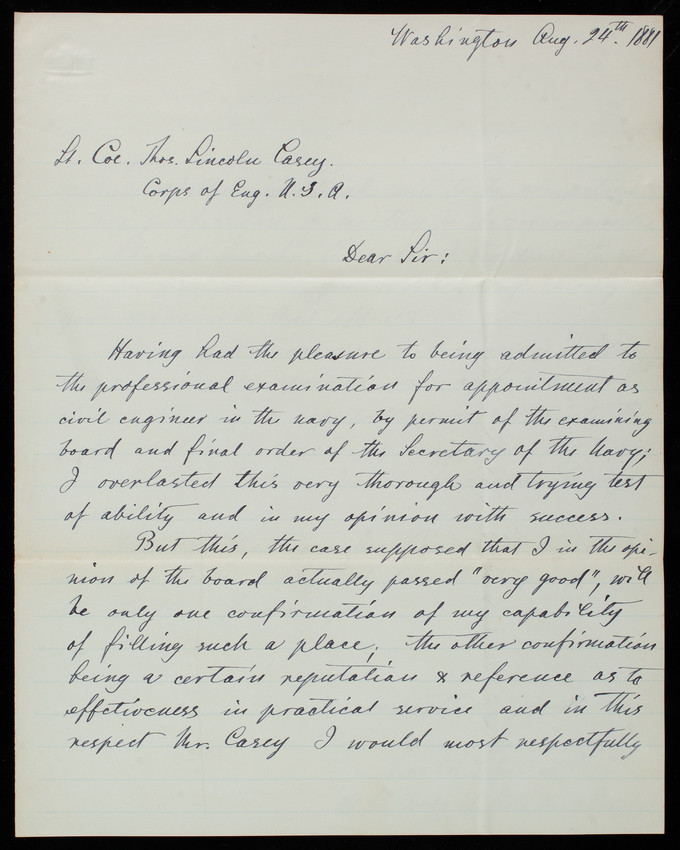 Washington Aug. 24th. 1881
Lt. Col. Thos. Lincoln Casey.
Corps of Eng. U.S.A.
Dear Sir:
Having had the pleasure to being admitted to
the professional examination for appointment as
civil engineer in the navy, by permit of the examining
board and final order of the Secretary of the Navy;
I overlasted this very thorough and trying test
of ability and in my opinion with success.
But this, the case supposed that I in the opi-
nion of the board actually passed "very good", will
be only one confirmation of my capability
of filling such a place; the other confirmation
being a certain reputation & reference as to
effctiveness in practical service and in this
respect Mr. Casey I would most respectfully